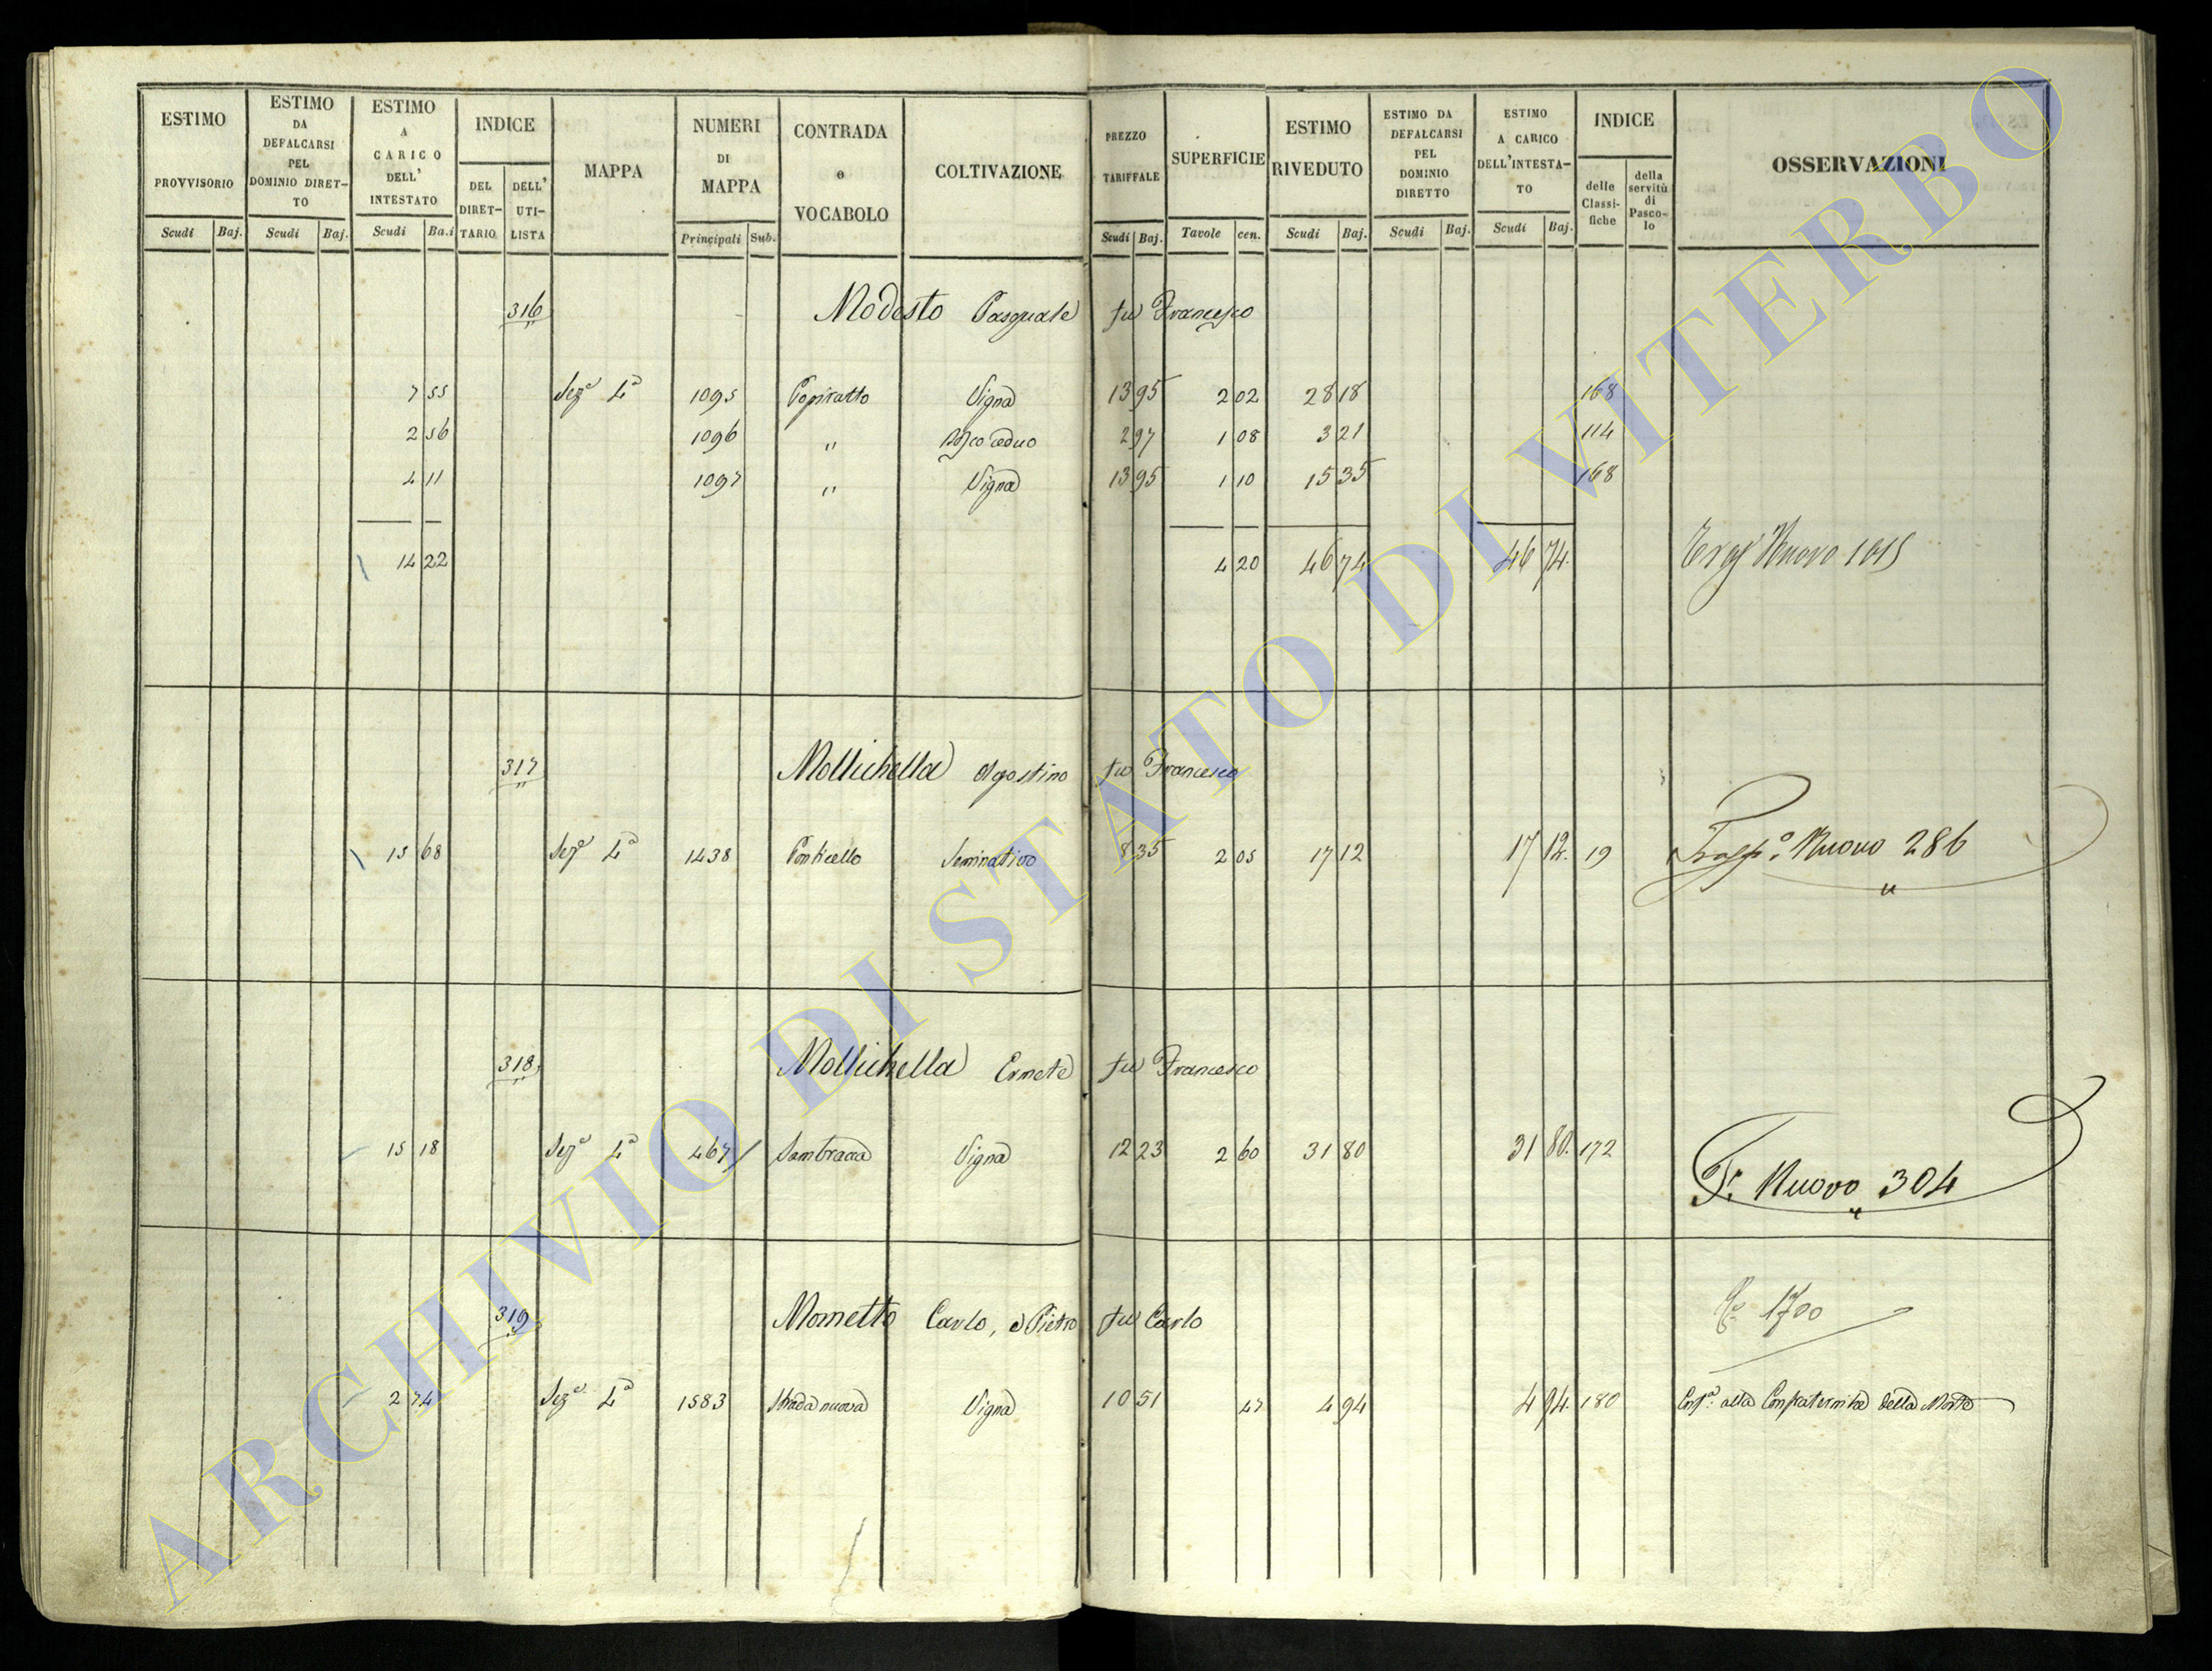 ESTIMO PROVVISORIO Scudi Baj.
ESTIMO DA DEFALCARSI PEL DOMINIO DIRET-TO Scudi Baj.
ESTIMO A CARICO DELL' INTESTATO Scudi Ba.i
INDICE DEL DIRET-TARIO DELL' UTI-LISTA
MAPPA
NUMERI DI MAPPA Principali Sub.
CONTRADA o VOCABOLO
COLTIVAZIONE
PREZZO TARIFFALE Scudi Baj.
SUPERFICIE Tavole cen.
ESTIMO RIVEDUTO Scudi Baj.
ESTIMO DA DEFALCARSI PEL DOMINIO DIRETTO Scudi Baj.
ESTIMO A CARICO DELL'INTESTA-TO Scudi Baj.
INDICE delle Classi-fiche della servitù di Pasco-lo
OSSERVAZIONI
316 Modesto Pasquale fu Francesco
7 55 Seze 4a 1095 Vigna 13 95 2 02 28 18 168
2 56 1096 " Bosco ceduo 2 97 1 08 3 21 114
4 11 1097 " Vigna 13 95 1 10 15 35 168
14 22 4 20 46 74 46 74. Nuovo 1015
317 Mollichella Agostino fu Francesco
15 68 Seze 4a 1438 Ponticello Seminativo 8 35 2 05 17 12 17 12. 19 Nuovo 286
318 Mollichella Ermete fu Francesco
15 18 Seze 4a 467 Sambracca Vigna 12 23 2 60 31 80 31 80. 172 T. Nuovo 304
319 Mometto Carlo, e Pietro fu Carlo 1700
2 74 Seze 4a 1583 Strada nuova Vigna 10 51 47 4 94 4 94. 180 Corrisp.a alla Confraternita della Morte
ARCHIVIO DI STATO DI VITERBO